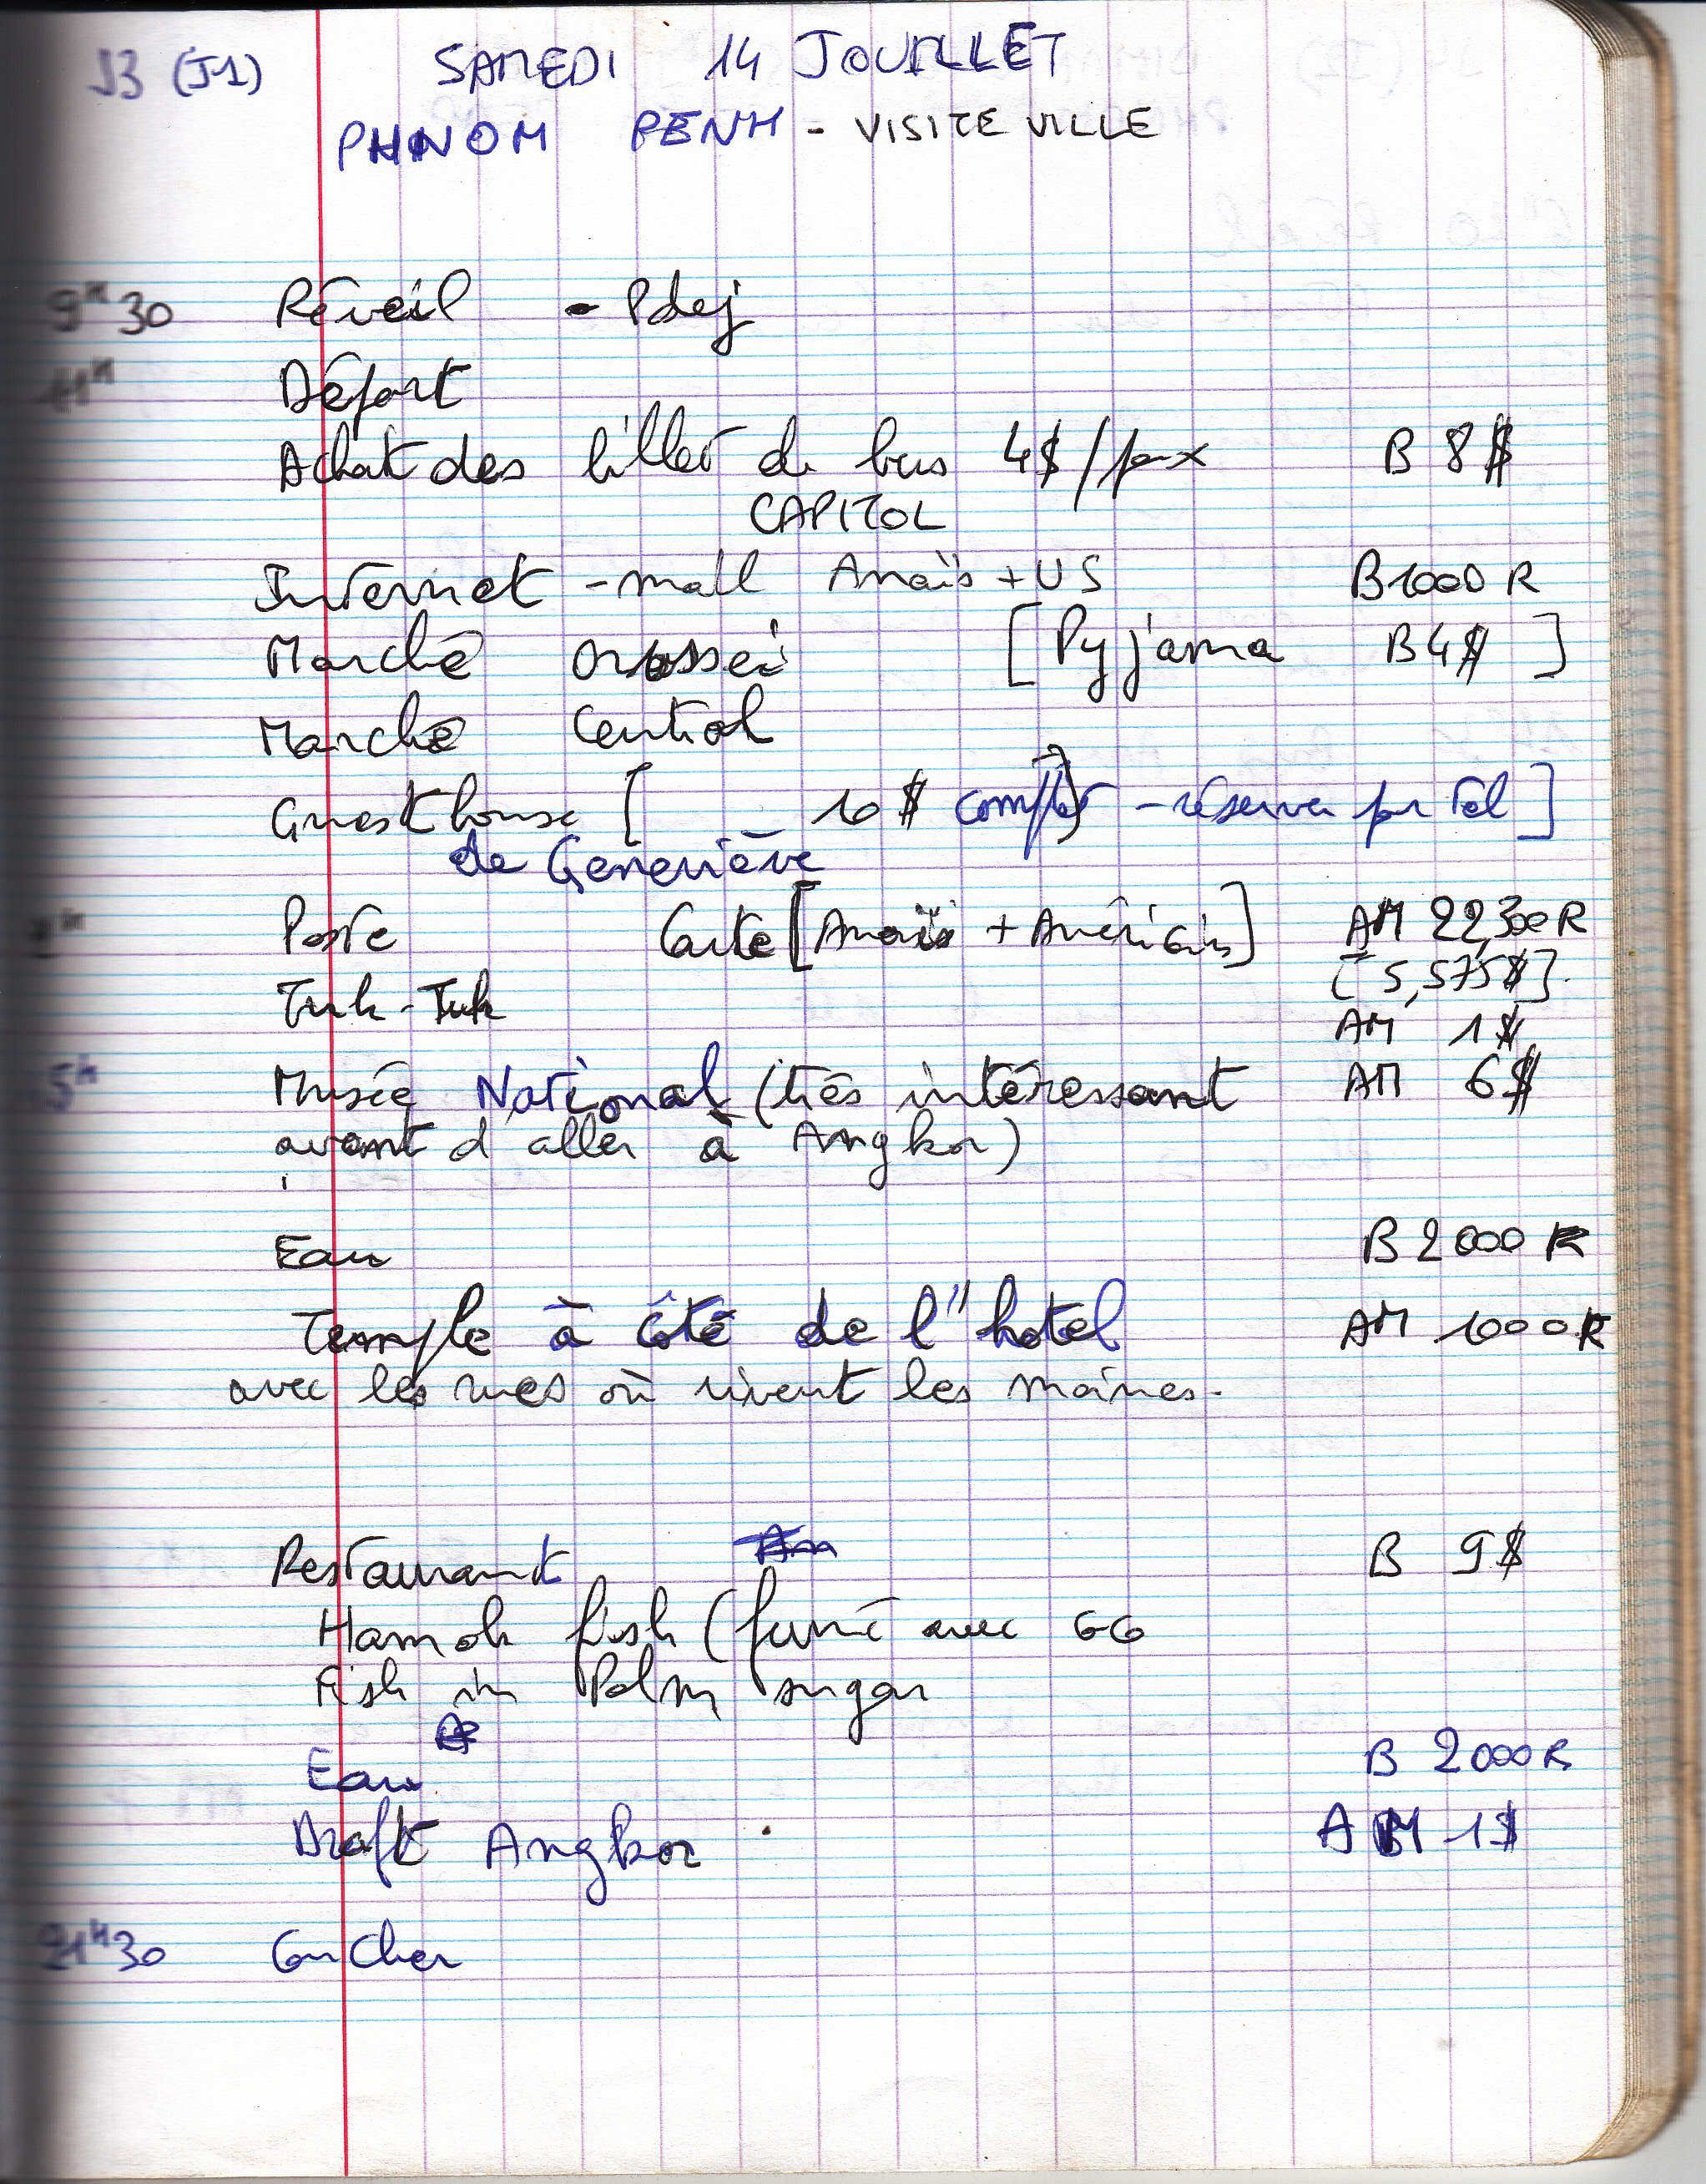 J3 (J1) SAMEDI 14 JOUILLET
PHNOM PENH - VISITE VILLE
9H30 Réveil - Pdej
11H Départ
Achat des billet de bus 4$/pax B 8$
CAPITOL
Internet - mall Anaïs + US B 1000 R
Marché Orossei [Pyjama B 4$]
Marché Central
Guesthouse [ 10$ complet - réserver par Tel ]
de Geneviève
Poste Carte [Anaïs + Américains] AM 22,300 R
[5,575$].
Tuk-Tuk AM 1$
5h Musée National (très intéressant AM 6$
avant d'aller à Angkor)
Eau B 2000 R
Temple à côté de l'hotel AM 1000 R
avec les rues où vivent les moines.
Restaurant B 9$
Hamok fish (fumé avec GG
Fish in Palm sugar
Eau B 2000 R
Draft Angkor. AM 1$
21H30 Coucher